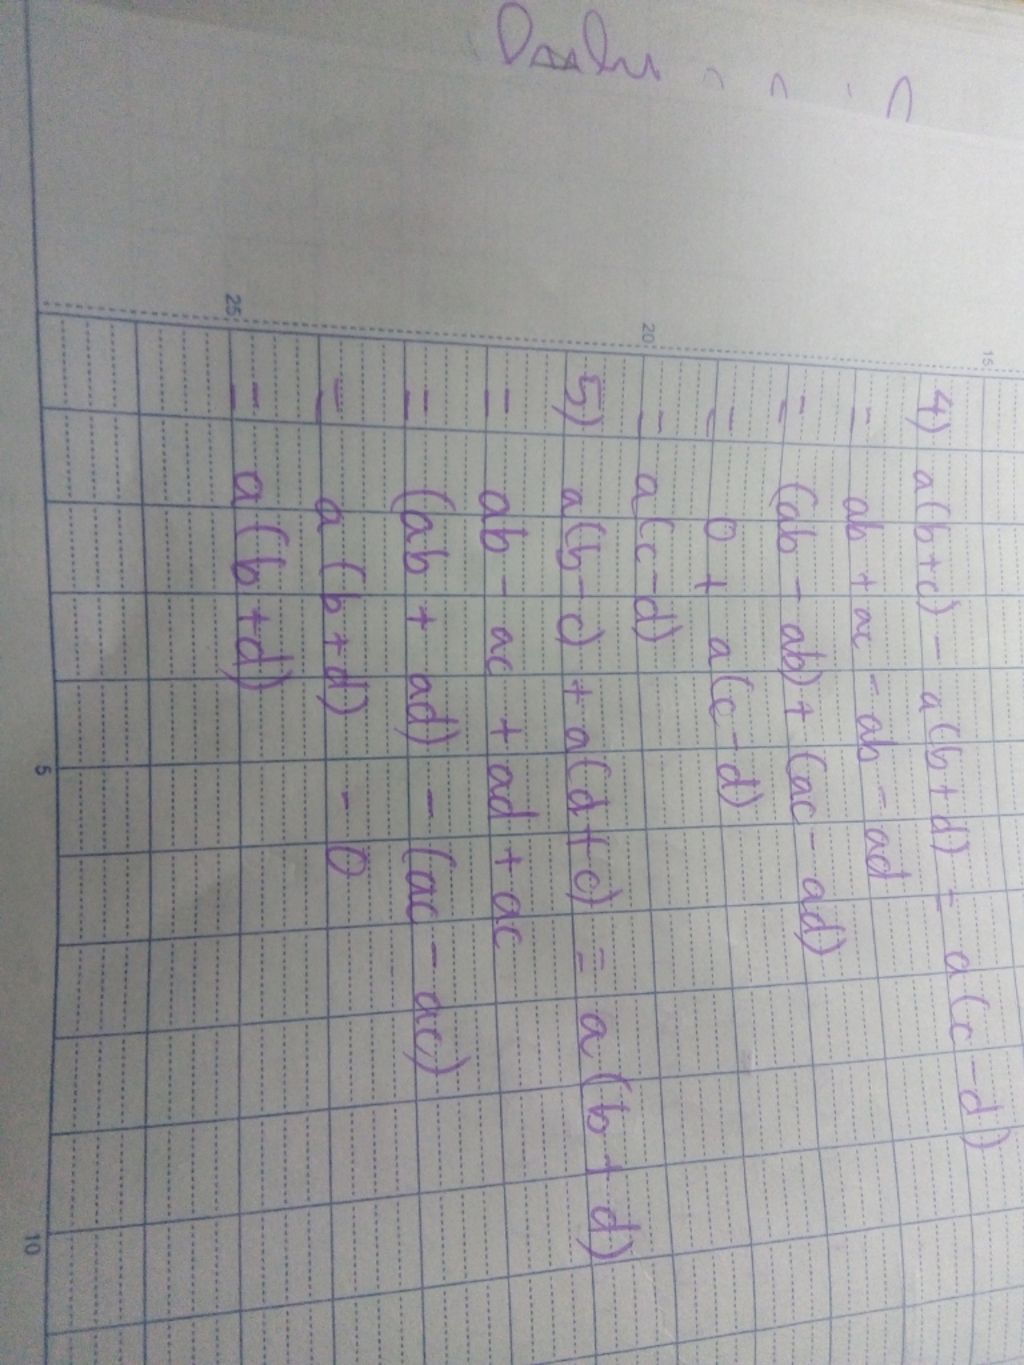 15
4) a(b+c) - a(b+d) = a(c-d)
= ab + ac - ab - ad
= (ab - ab) + (ac - ad)
= 0 + a(c-d)
20
= a(c-d)
5) a(b-c) + a(d+c) = a(b+d)
= ab - ac + ad + ac
= (ab + ad) - (ac - ac)
= a(b+d) - 0
25
= a(b+d)
5
10